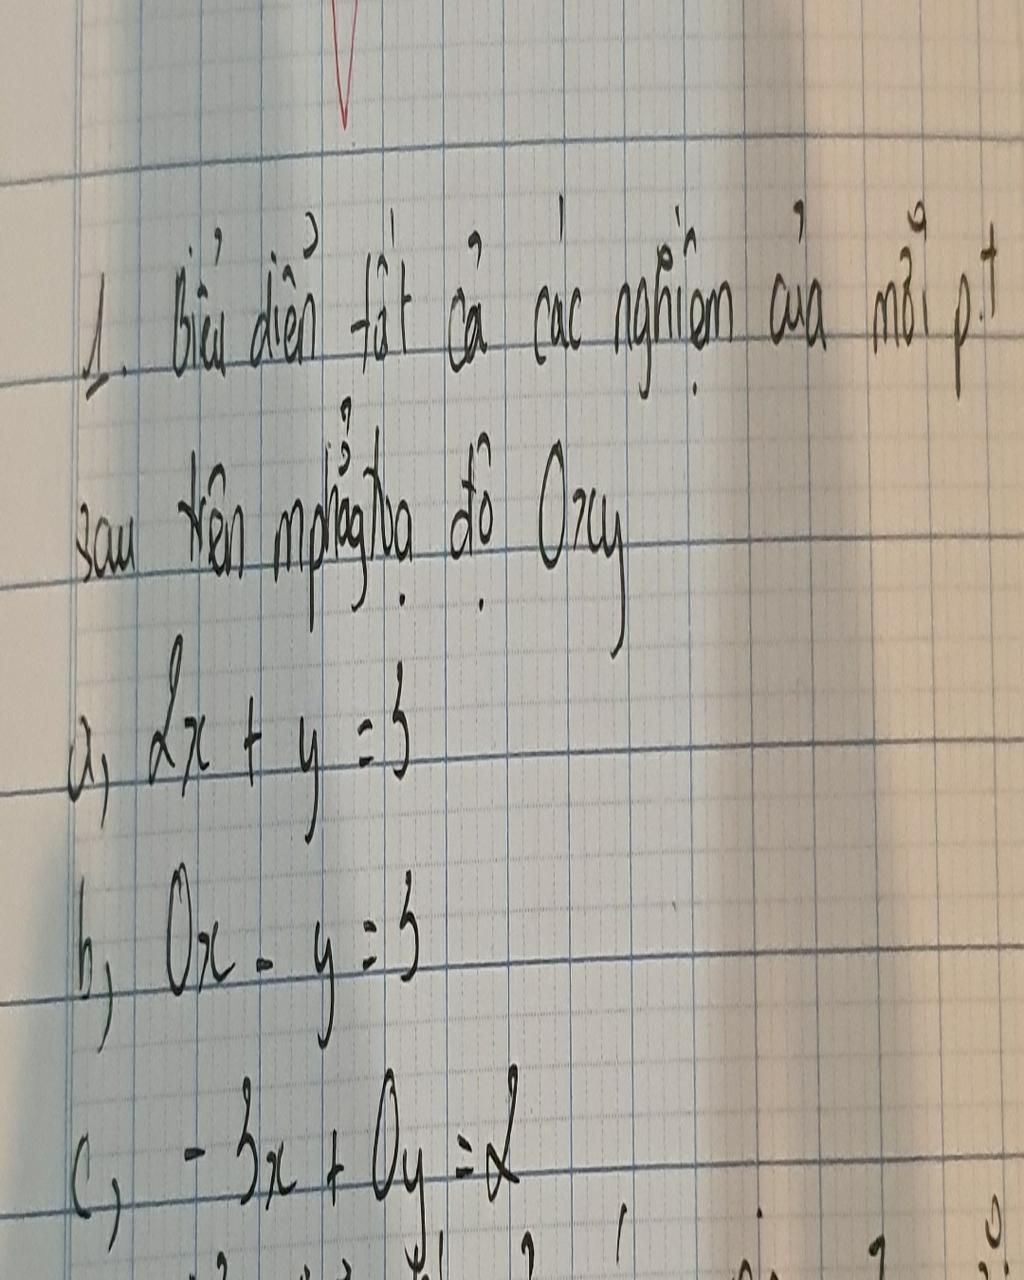 1. Biểu diễn tất cả các nghiệm của mỗi p.t
sau trên mphẳng tọa độ Oxy
a, 2x + y = 3
b, 0x - y = 3
c, - 3x + 0y = 2